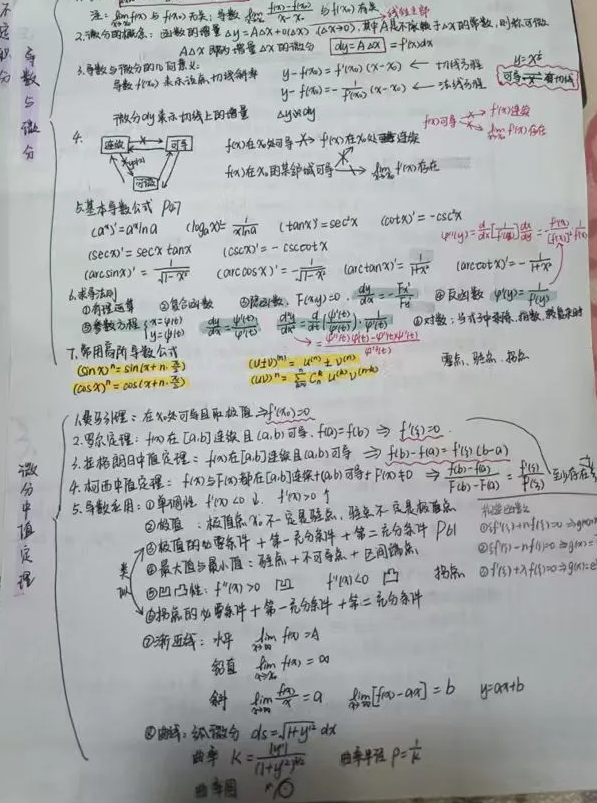 导数与微分
注: lim f(x) 与 f(x₀) 无关; 导数 lim (f(x)-f(x₀))/(x-x₀) 与 f(x₀) 有关
2.微分的概念: 函数的增量 Δy=AΔx+o(Δx) (Δx→0), 其中A是不依赖于Δx的常数, 则称可微
AΔx 即为增量Δx的微分 dy=AΔx =f'(x)dx
3.导数与微分的几何意义:
导数f'(x₀)表示该点切线斜率 y-f(x₀)=f'(x₀)(x-x₀) ← 切线方程
y-f(x₀)=-1/f'(x₀) (x-x₀) ← 法线方程
可导 有切线
微分dy表示切线上的增量 Δy≈dy
f(x)可导 f'(x)连续
lim f'(x)存在
4. 连续 可导 可微
f(x)在x₀处可导 f'(x)在x₀处连续
f(x)在x₀的某邻域可导 lim f'(x)存在
5.基本导数公式 P67
(aˣ)'=aˣlna (logₐx)'=1/(xlna) (tanx)'=sec²x (cotx)'=-csc²x
(secx)'=secx tanx (cscx)'=-cscx cotx
(arcsinx)'=1/√(1-x²) (arccosx)'=-1/√(1-x²) (arctanx)'=1/(1+x²) (arccotx)'=-1/(1+x²)
6.求导法则
①有理运算 ②复合函数 ③隐函数, F(x,y)=0, dy/dx=-Fx'/Fy' ④反函数 φ'(y)=1/f'(x)
⑤参数方程 {x=φ(t) y=ψ(t) dy/dx=ψ'(t)/φ'(t) d²y/dx²=d/dt(ψ'(t)/φ'(t))·1/φ'(t) ⑥对数:
7.常用高阶导数公式
(sinx)ⁿ=sin(x+n·π/2) (u±v)⁽ⁿ⁾=u⁽ⁿ⁾±v⁽ⁿ⁾
(cosx)ⁿ=cos(x+n·π/2)
零点、驻点、拐点
微分中值定理
1.费马引理: 在x₀处可导且取极值⇒f'(x₀)=0
2.罗尔定理: f(x)在[a,b]连续且(a,b)可导, f(a)=f(b) ⇒ f'(ξ)=0
3.拉格朗日中值定理: f(x)在[a,b]连续且(a,b)可导 ⇒ f(b)-f(a)=f'(ξ)(b-a)
4.柯西中值定理: f(x)与F(x)都在[a,b]连续+(a,b)可导+F'(x)≠0 ⇒ (f(b)-f(a))/(F(b)-F(a))=f'(ξ)/F'(ξ)
5.导数应用: ①单调性 f'(x)<0 ↓, f'(x)>0 ↑
②极值: 极值点x₀不一定是驻点, 驻点不一定是极值点
③极值的必要条件+第一充分条件+第二充分条件 P61
类似
④最大值与最小值: 驻点+不可导点+区间端点
⑤凹凸性: f''(x)>0 凹 f''(x)<0 凸 拐点
⑥拐点的必要条件+第一充分条件+第二充分条件
⑦渐近线: 水平 lim f(x)=A
铅直 lim f(x)=∞
斜 lim f(x)/x=a lim[f(x)-ax]=b y=ax+b
⑧曲线: 弧微分 ds=√(1+y'²) dx
曲率 K=|y''|/(1+y'²)^(3/2) 曲率半径 ρ=1/k
曲率圆